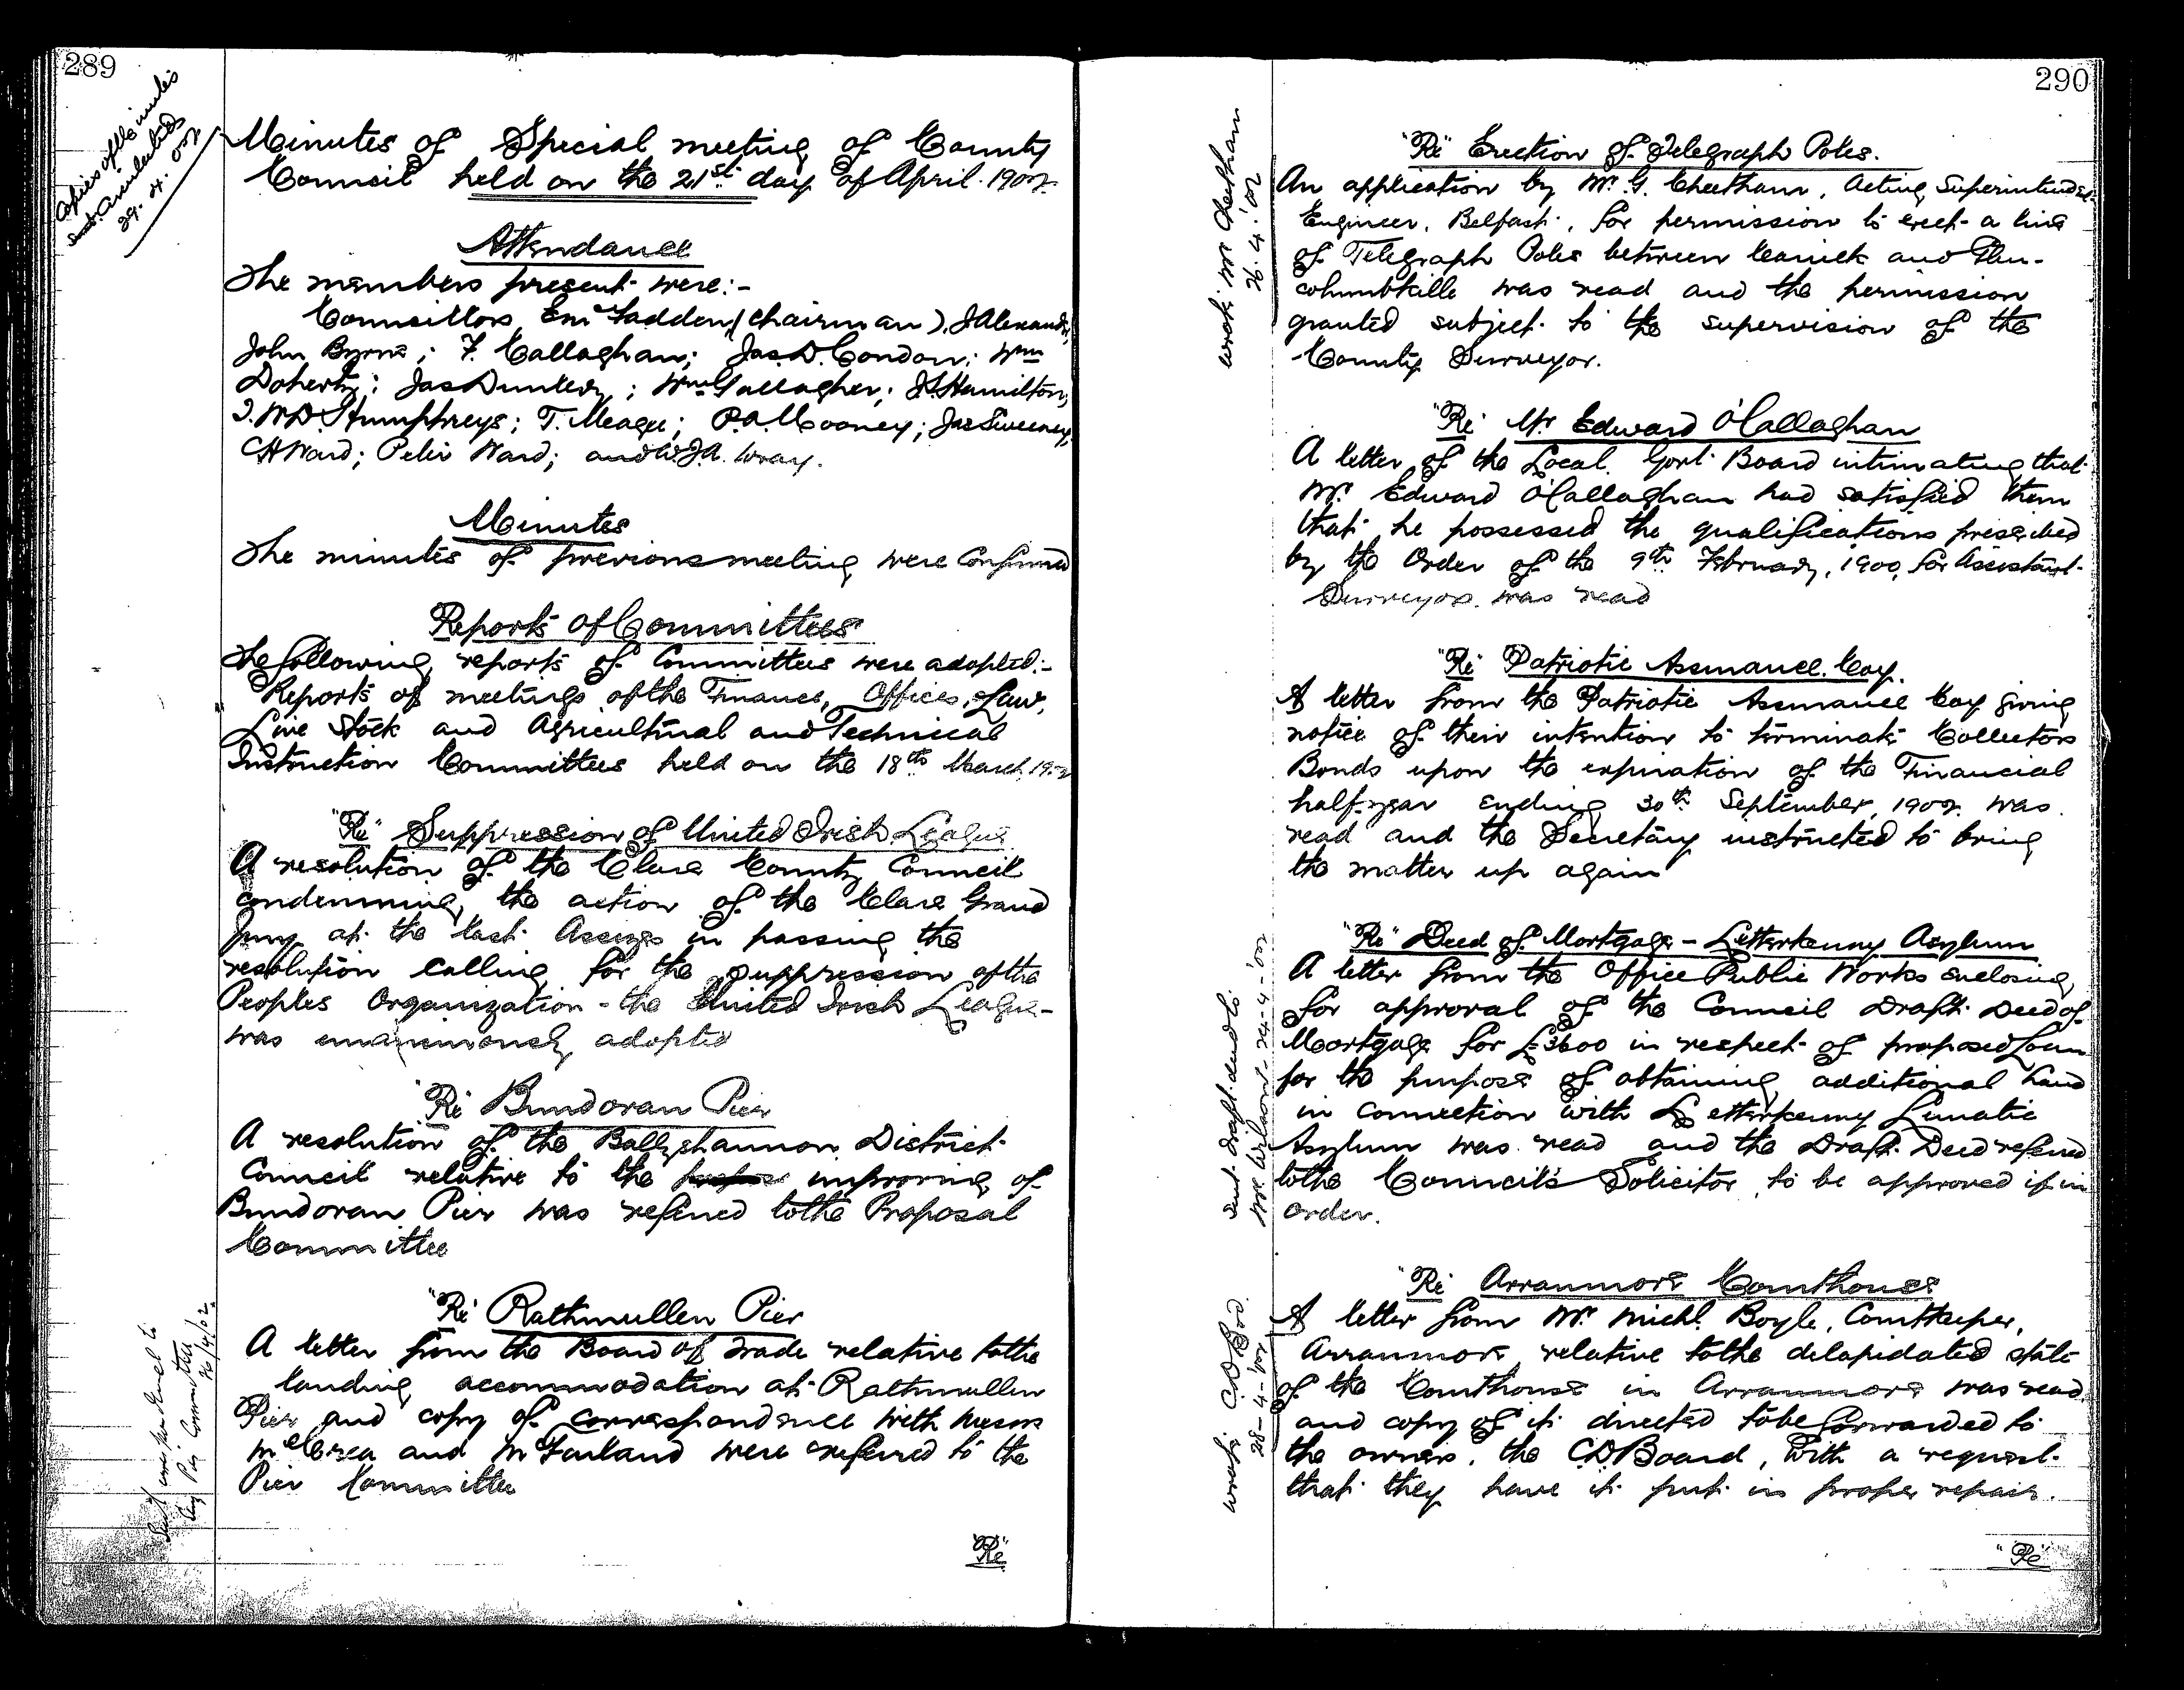 289
Copies of these minutes
and circulated
29. 4. 02
Minutes of Special meeting of County
Council held on the 21st day of April 1902.
Attendance
The members present were:-
Councillors E McFadden (Chairman), J Alexander,
John Byrne; F. Callaghan; Jas D. Condon; Wm
Doherty; Jas Dunlevy; Wm Gallagher; J S Hamilton,
T. W. D. Humphreys; T. Meagee; P. A. Mooney; Jas Sweeney,
C H Ward; Peter Ward; and W. J. A. Wray.
Minutes
The minutes of previous meeting were Confirmed
Reports of Committees
The following reports of Committees were adopted:-
Reports of meetings of the Finance, Offices, Law,
Live Stock and Agricultural and Technical
Instruction Committees held on the 18th March, 1902
"Re" Suppression of United Irish League
A resolution of the Clare County Council
condemning the action of the Clare Grand
Jury at the last Assizes in passing the
resolution calling for the suppression of the
Peoples Organization - the United Irish League -
was unanimously adopted
"Re" Bundoran Pier
A resolution of the Ballyshannon District
Council relative to the improving of
Bundoran Pier was referred to the Proposal
Committee
"Re" Rathmullen Pier
A letter from the Board of Trade relative to the
landing accommodation at Rathmullen
Pier and copy of correspondence with Messrs
McCrea and McFarland were referred to the
Pier Committee
Pier Committee
26/4/02
"Re"
290
"Re" Erection of Telegraph Poles.
wrote Mr Cheetham
26. 4. '02
An application by Mr. G. Cheetham, Acting Superintendent
Engineer, Belfast, for permission to erect a line
of Telegraph Poles between Carrick and Glen-
columbkille was read and the permission
granted subject to the supervision of the
County Surveyor.
"Re" Mr Edward O'Callaghan
A letter of the Local Govt Board intimating that
Mr. Edward O'Callaghan had satisfied them
that he possessed the qualifications prescribed
by the Order of the 9th February, 1900, for Assistant
Surveyor was read
"Re" Patriotic Assurance Coy.
A letter from the Patriotic Assurance Coy giving
notice of their intention to terminate Collectors
Bonds upon the expiration of the Financial
half-year ending 30th September, 1902 was
read and the Secretary instructed to bring
the matter up again
"Re" Deed of Mortgage - Letterkenny Asylum
sent draft deed to
24-4-'02
A letter from the Office Public Works enclosing
for approval of the Council Draft Deed of
Mortgage for £3600 in respect of proposed Loan
for the purpose of obtaining additional land
in connection with Letterkenny Lunatic
Asylum was read and the Draft Deed referred
to the Council's Solicitor to be approved if in
order.
"Re" Arranmore Courthouse
wrote C D Brd.
28-4-'02
A letter from Mr. Michl. Boyle, Courtkeeper,
Arranmore relative to the delapidated state
of the Courthouse in Arranmore was read
and copy of it directed to be forwarded to
the owners, the C. D. Board, with a request
that they have it put in proper repair.
"Re"